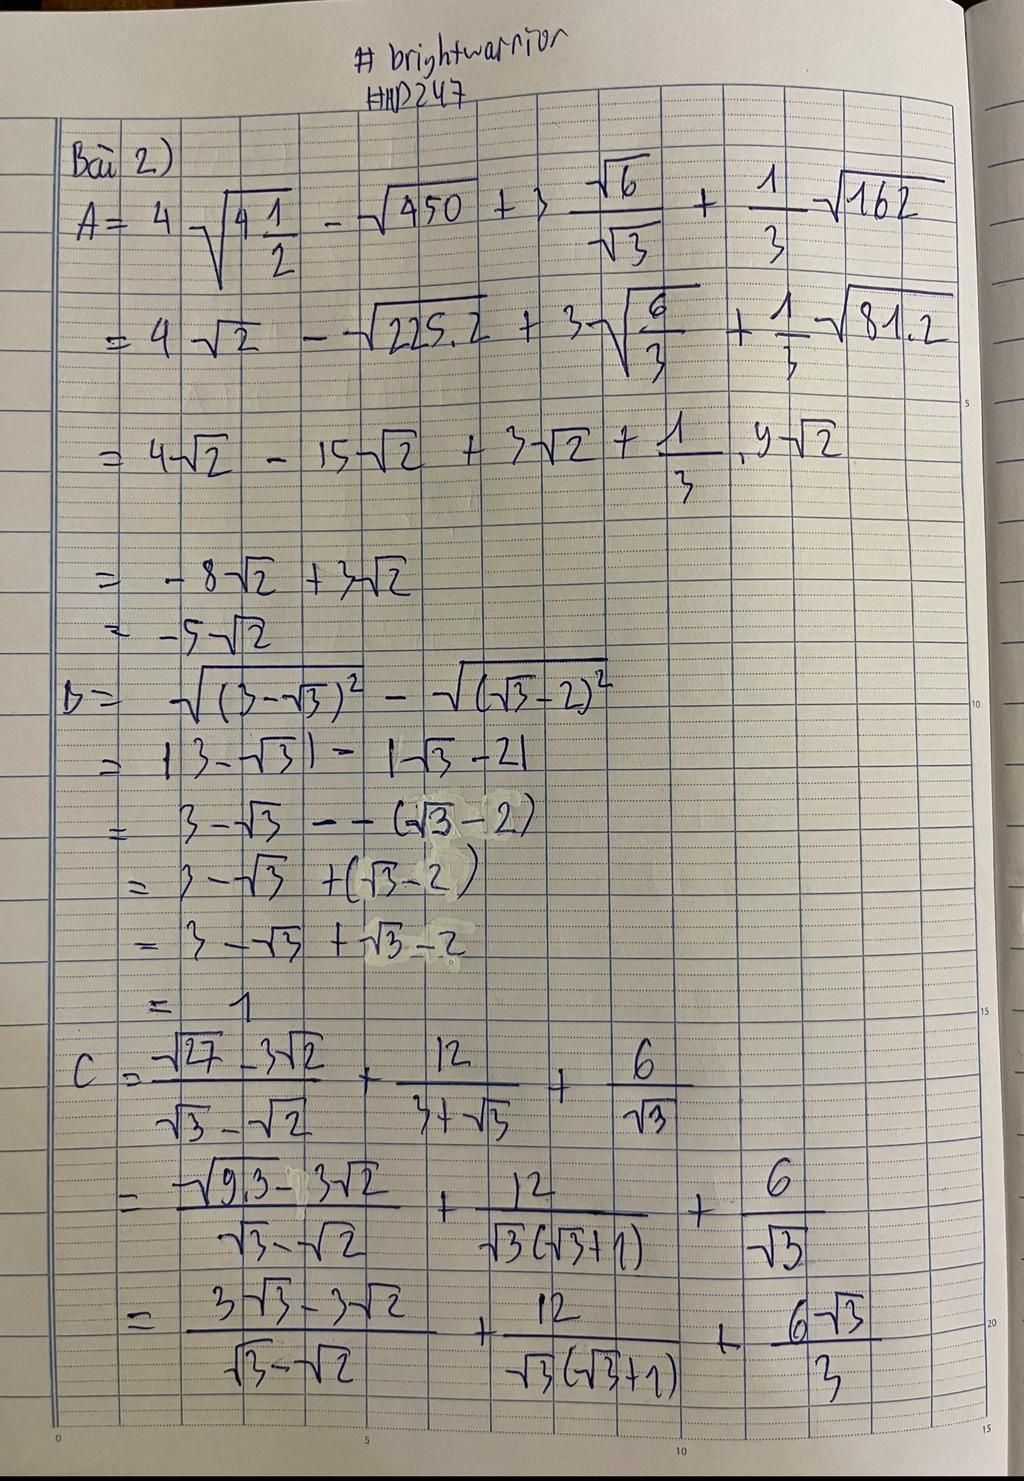 # brightwarrior
HAD247
Bài 2)
A = 4 √(4 1/2) - √450 + 3 √6/√3 + 1/3 √162
= 4 √2 - √(225.2) + 3√(6/3) + 1/3 √(81.2)
= 4√2 - 15√2 + 3√2 + 1/3 . 9√2
= -8√2 + 3√2
= -5√2
B = √((3-√3)²) - √((√3-2)²)
= |3-√3| - |√3-2|
= 3-√3 - -(√3-2)
= 3-√3 +(√3-2)
= 3-√3 + √3-2
= 1
C = (√27 - 3√2)/(√3 - √2) + 12/(3+√3) + 6/√3
= (√(9.3) - 3√2)/(√3 - √2) + 12/(√3(√3+1)) + 6/√3
= (3√3 - 3√2)/(√3 - √2) + 12/(√3(√3+1)) + 6√3/3
5
10
15
20
0 5 10 15